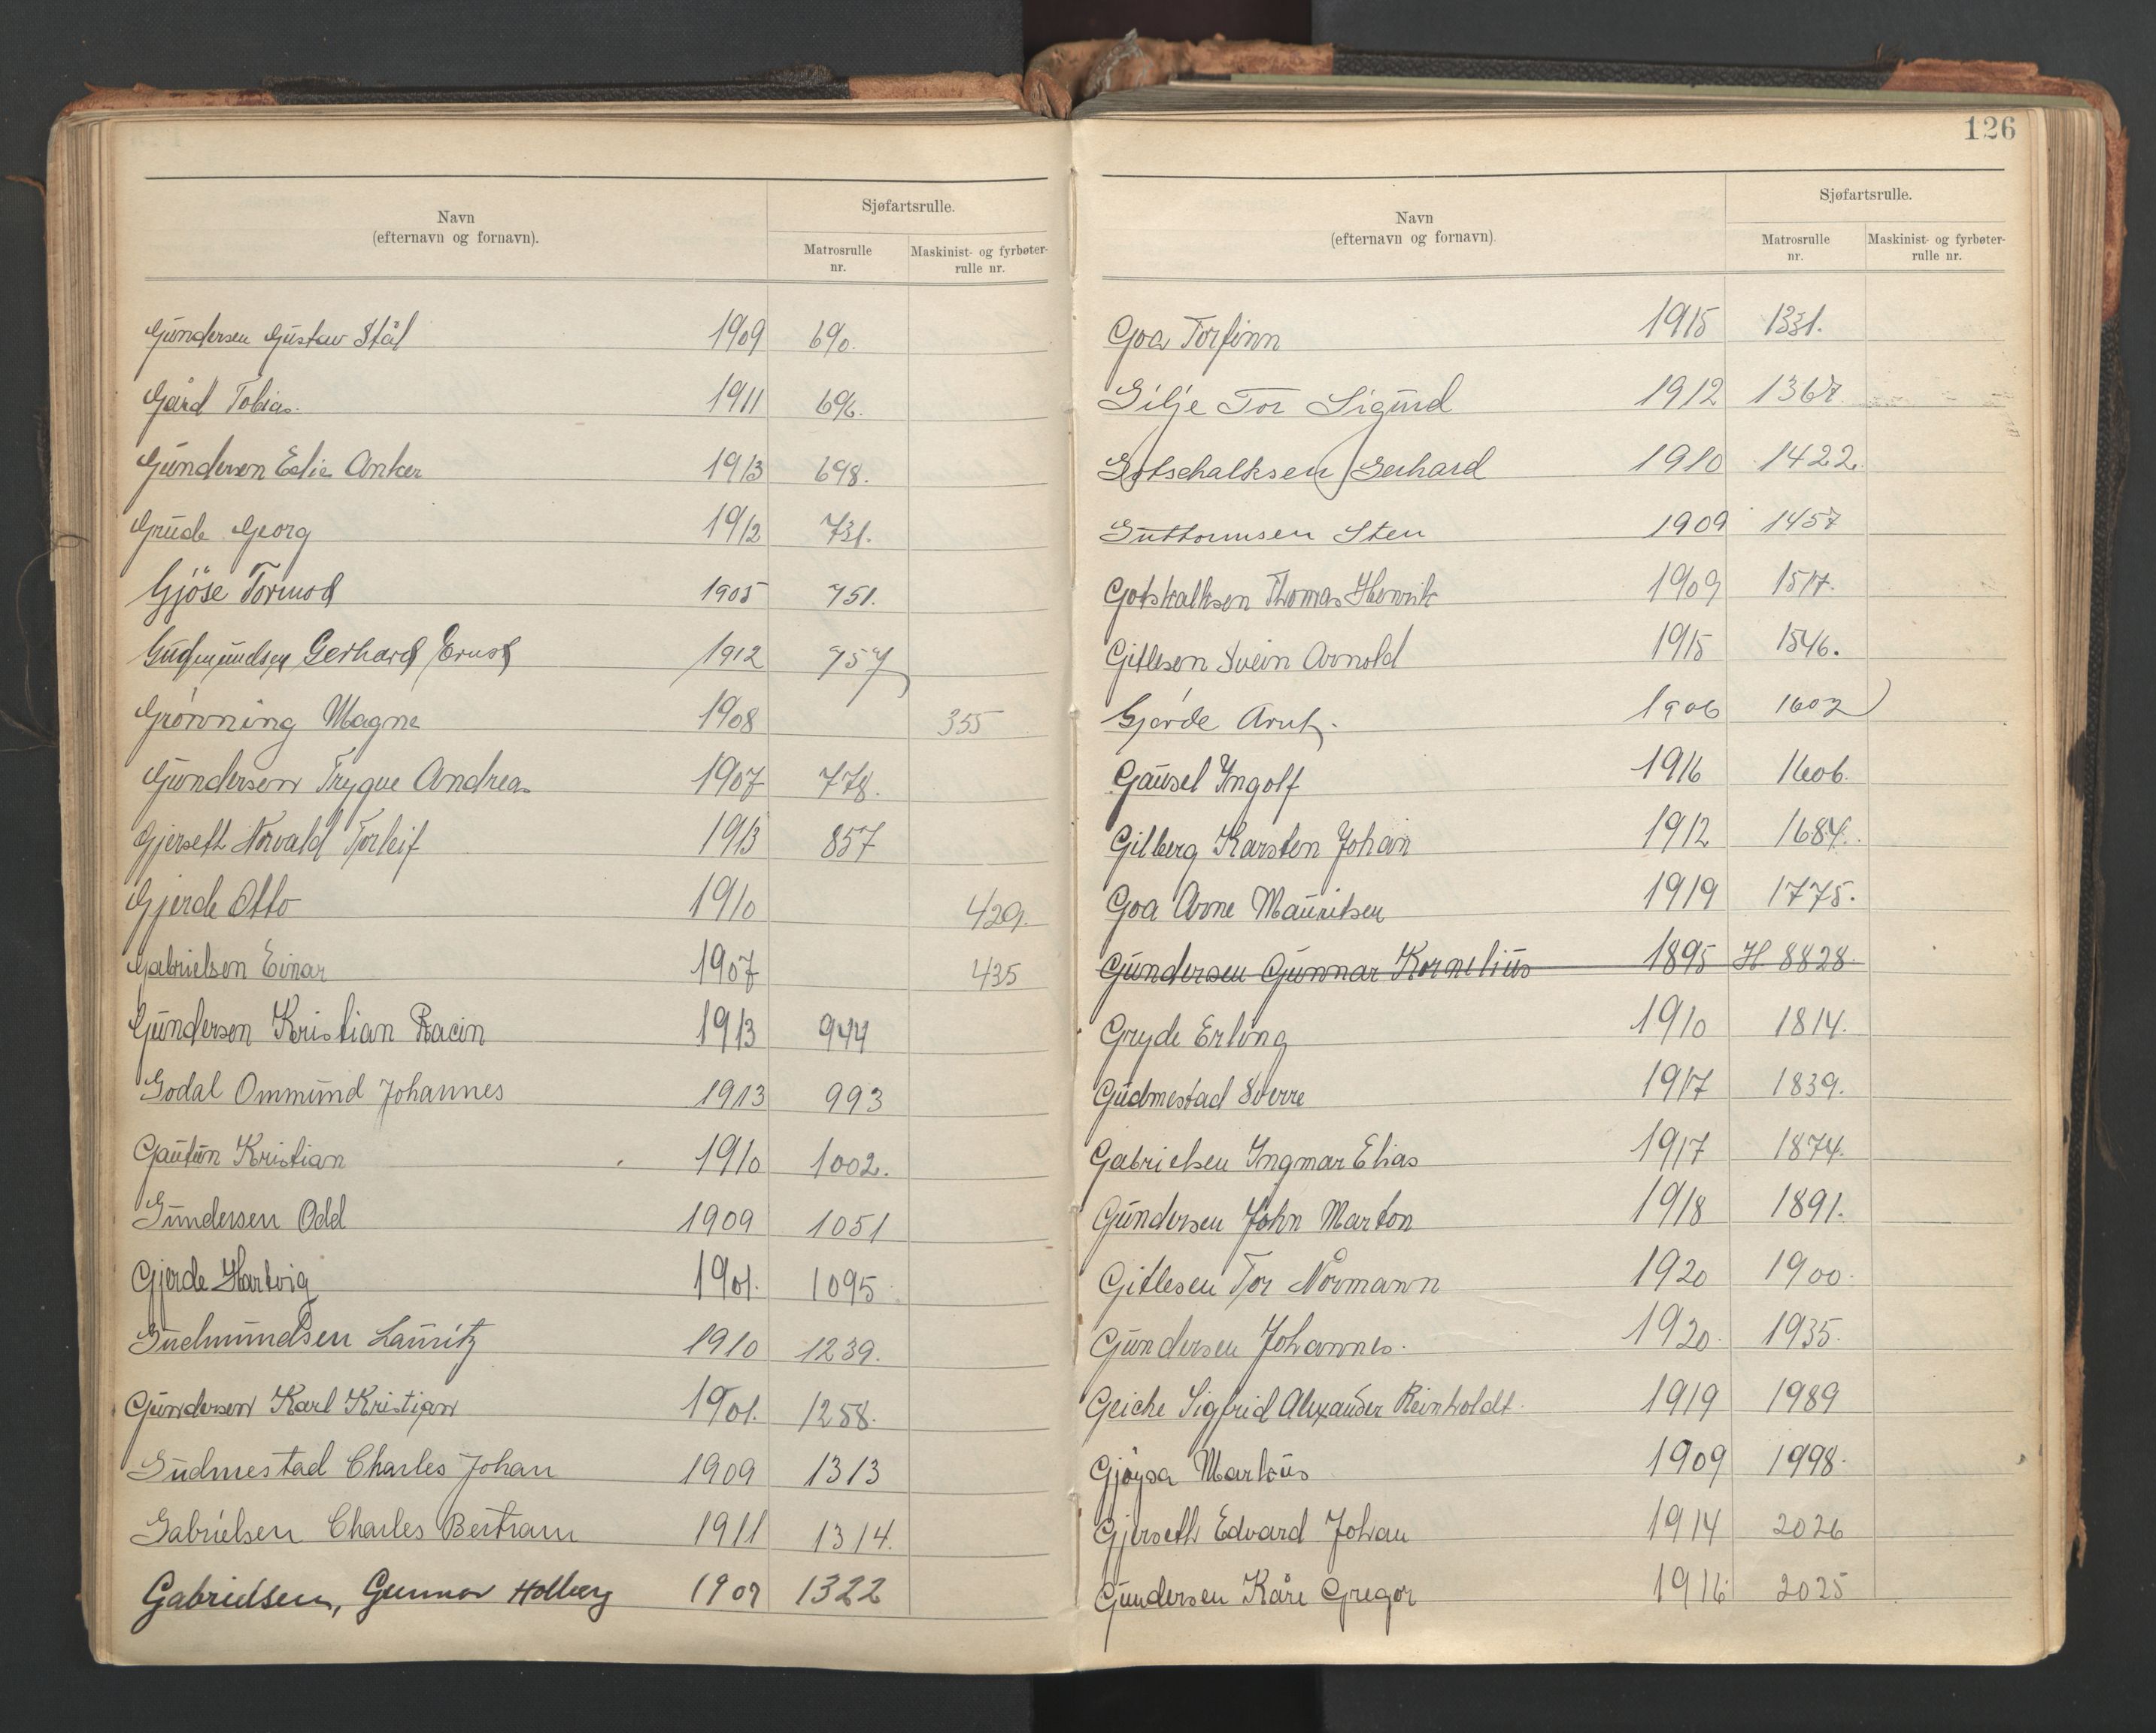 Navn
(efternavn og fornavn).
Sjøfartsrulle.
Matrosrulle
nr.
Maskinist- og fyrbøter-
rulle nr.
Gundersen Gustav Stål 1909 690.
Gård Tobias. 1911 696.
Gundersen Anker 1913 698.
Grude Georg 1912 731.
Gjöse Tormod 1905 751.
Gudmundsen Gerhard Ernst 1912 757
Grønning Magne 1908 355
Gundersen Trygve Andreas 1907 778.
Gjerseth Norvald Torleif 1913 857
Gjerde Otto 1910 429.
Gabrielsen Einar 1907 435
Gundersen Kristian Racin 1913 944
Godal Ommund Johannes 1913 993
Gautun Kristian 1910 1002.
Gundersen Odd 1909 1051
Gjerde Hartvig 1901. 1095
Gudmundsen Lauritz 1910 1239.
Gundersen Karl Kristian 1901. 1258.
Gudmestad Charles Johan 1909 1313
Gabrielsen Charles Bertram 1911 1314.
Gabrielsen, Gunnar Holberg 1907 1322
126
Navn
(efternavn og fornavn).
Sjøfartsrulle.
Matrosrulle
nr.
Maskinist- og fyrbøter-
rulle nr.
Goa Torfinn 1915 1331.
Gilje Tor Sigurd 1912 1367
Gotschalksen Gerhard 1910 1422.
Guttormsen Sten 1909 1457
Gotskalksen Thomas Henrik 1909 1517.
Gitlesen Svein Arnold 1915 1546.
Gjerde 1906 1602
Gausel Yngolf 1916 1606.
Gilberg Karsten Johan 1912 1684.
Goa Arne Mauritsen 1919 1775.
Gundersen Gunnar Kornelius 1895 H 8828.
Gryde Erling 1910 1814.
Gudmestad Sverre 1917 1839.
Gabrielsen Yngmar Elias 1917 1874.
Gundersen John Marton 1918 1891.
Gitlesen Tor Normann 1920 1900.
Gundersen Johannes. 1920. 1935.
Geiche Sigfrid Alexander Reinholdt. 1919 1989
Gjøysa Markus 1909 1998.
Gjerseth Edvard Johan 1914 2026
Gundersen Kåre Gregor 1916 2025